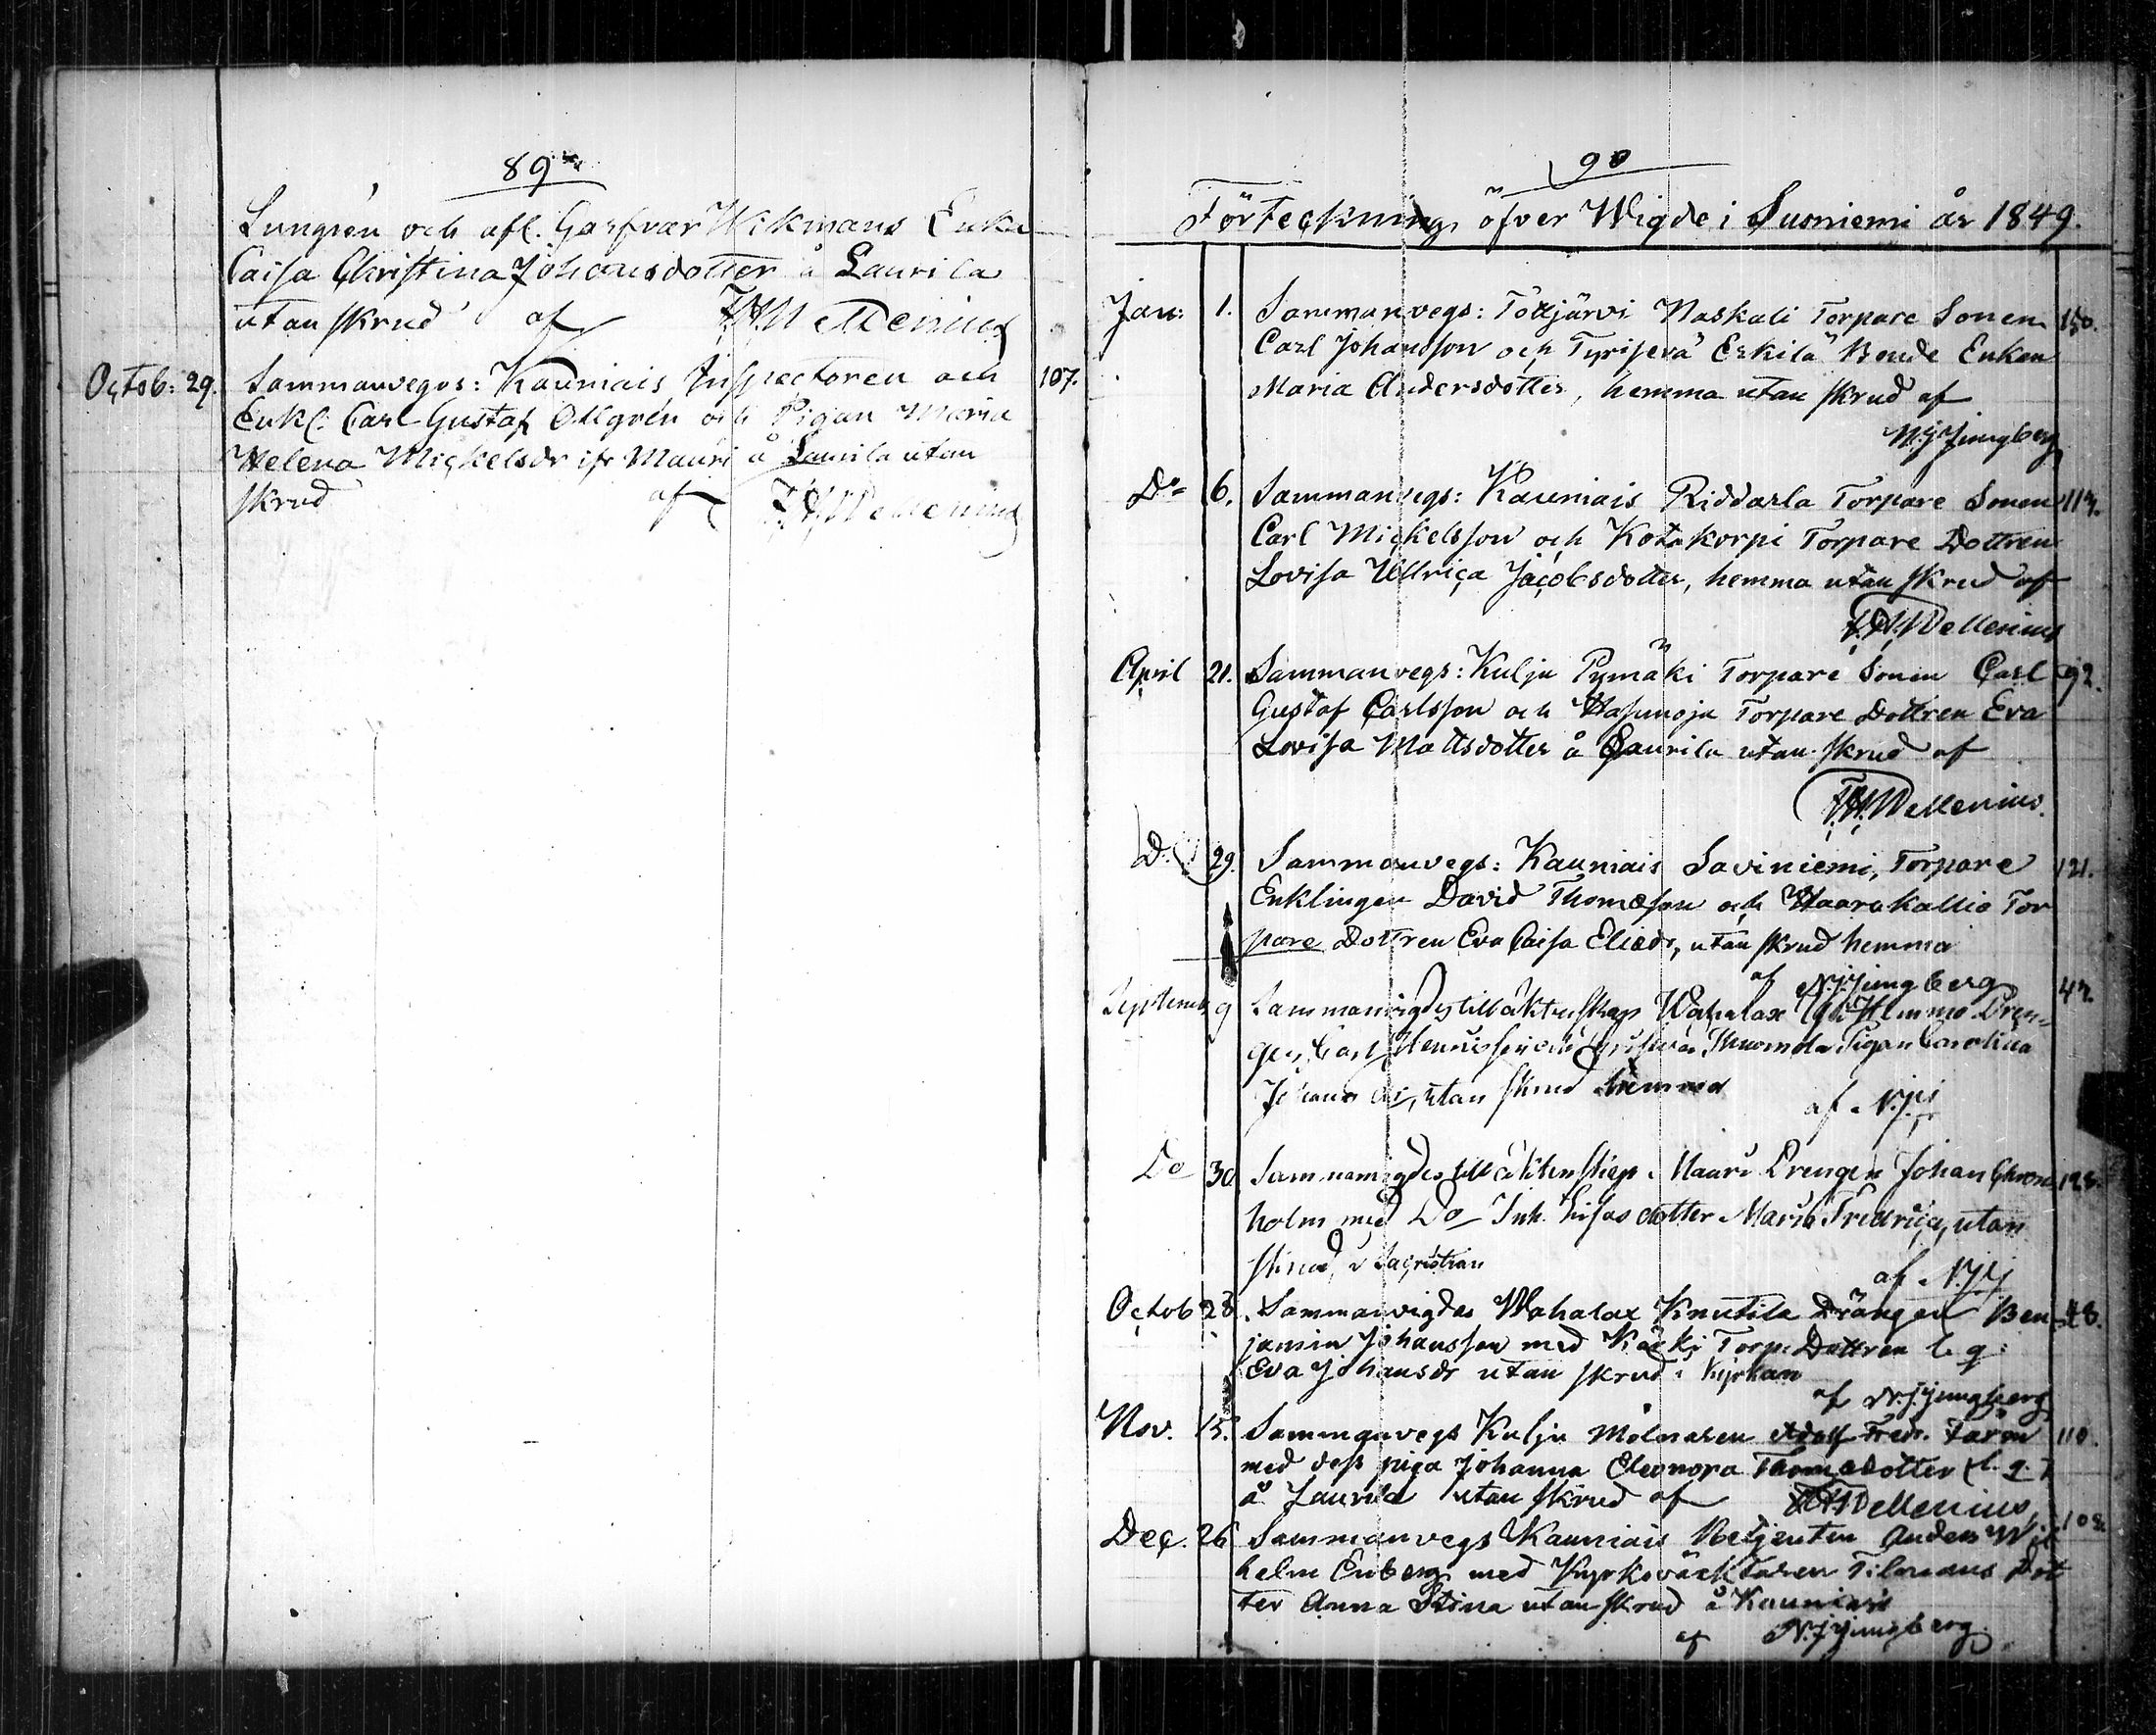 89
Lungrén och afl. Garfvar Wikmans Enka
Caisa Christina Johansdotter å Laurila
utan skrud af F.H. Wellenius
Octob: 29. Sammanvegos: Kauniais Inspectoren och 107.
Enkl: Carl Gustaf Ollgrén och Pigan Maria
Helena Mickelsdr ifr Mauri å Laurila utan
skrud af F.H. Wellenius
90
Förteckning öfver Wigde i Suoniemi år 1849.
Jan: 1. Sammanvegs: Tottjärvi Naskali Torpare Sonen 150.
Carl Johansson och Tyrisevä Eskilä Bonde Enkan
Maria Andersdotter, hemma utan skrud af
N.J. Jungberg
Do 6. Sammanvegs: Kauniais Riddarla Torpare Sonen 113.
Carl Mickelsson och Kotakorpi Torpare Dottren
Lovisa Ullrica Jacobsdotter, hemma utan skrud af
F.H. Wellenius
April 21. Sammanvegs: Kulju Pymäki Torpare Sonen Carl 92.
Gustaf Carlsson och Torpare Dottren Eva
Lovisa Mattsdotter å Laurila utan skrud af
F.H. Wellenius.
Do 29. Sammanvegs: Kauniais Saviniemi, Torpare 121.
Enklingen David Thomasson och Haarakallio Tor
pare Dottren Eva Caisa Eliædr, utan skrud hemma
af N.J. Jungberg
Septemb 9 Sammanvigdes till äktenskap Wahalax Hemmo Dren
gen Carl Henricsson och Pigan Carolina
Johans dr, utan skrud hemma
af N.J.
Do 30. Sammanvigdes till äktenskap Mauri Drengen Johan 123.
holm med Do Inh. dotter Maria Fredrica, utan
skrud, i Sacristian
af N.J.J
Octob 28. Sammanvigdes Wahalax Knutila Drängen Ben 48.
jamin Johansson med Käcki Torp. Dottren l. q.
Eva Johansdr utan skrud i Kyrkan
af N.J. Jungberg
Nov. 15. Sammanvegs Kulju Mölnaren Adolf Fredr. Farén 110.
med dess piga Johanna Eleonora Thomædotter l. q.
å Laurila utan skrud af F.H. Wellenius
Dec. 26 Sammanvegs Kauniais Betjenten Anders Wil 108.
helm Enberg med Kyrkoväcktaren Tilmans Dot
ter Anna Stina utan skrud å Kauniais
af N.J. Jungberg